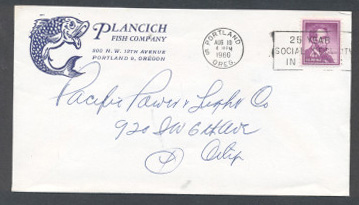 PLANCICH
FISH COMPANY
300 N. W. 13TH AVENUE
PORTLAND 9, OREGON
PORTLAND
AUG 18
PM
1960
OREG.
25
SOCIAL
IN
Pacific Power & Light Co
920 SW 6th AVE
City